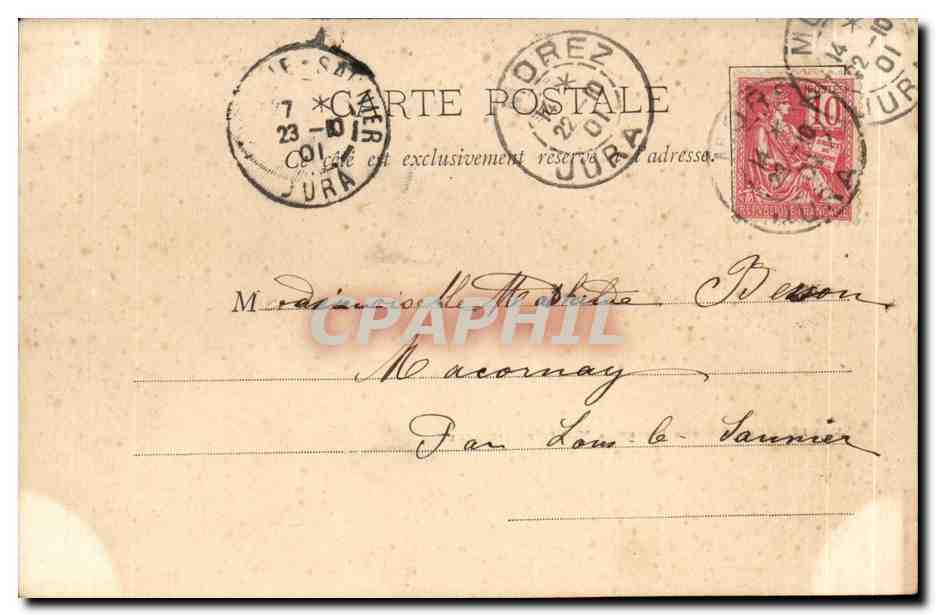 CARTE POSTALE
Ce côté est exclusivement réservé à l'adresse.
SAUNIER
7 *
23 -10
01
JURA
MOREZ
*
22 10
01
JURA
14 *
22 -10
01
JURA
10
REPUBLIQUE FRANÇAISE
Mademoiselle Mathilde Besson
CPAPHIL
Macornay
Par Lons-le-Saunier